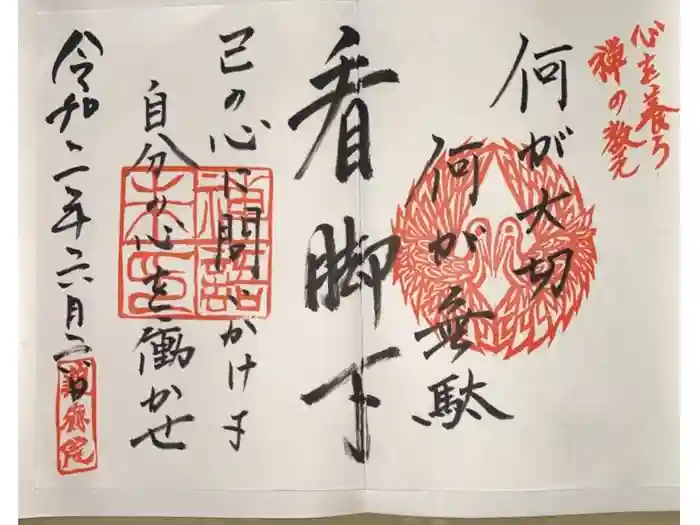 心を養う
禅の教え
何が大切
何が無駄
看脚下
己の心に問いかけます
自分の心を働かせ
令和二年六月